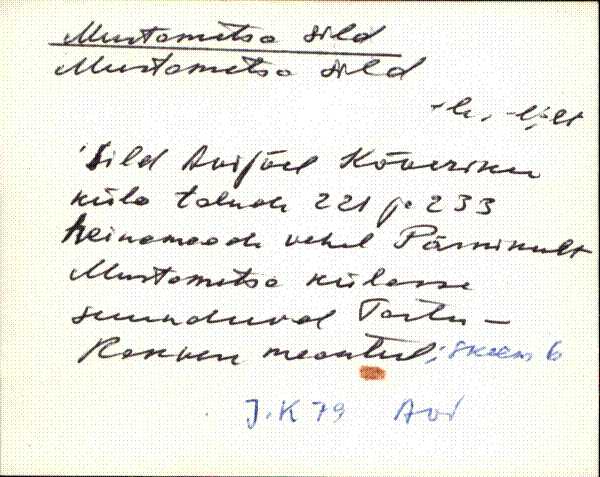 Mustametsa sild
Mustametsa sild
-le, -l̦t
Sild Avijõel Kõveriku
küla talude 221 ja 233
heinamaade vahel Pärnikult
Mustametsa külasse
suunduval Tartu-
Rakvere maanteel; skeem 6
J.K 79 Avi